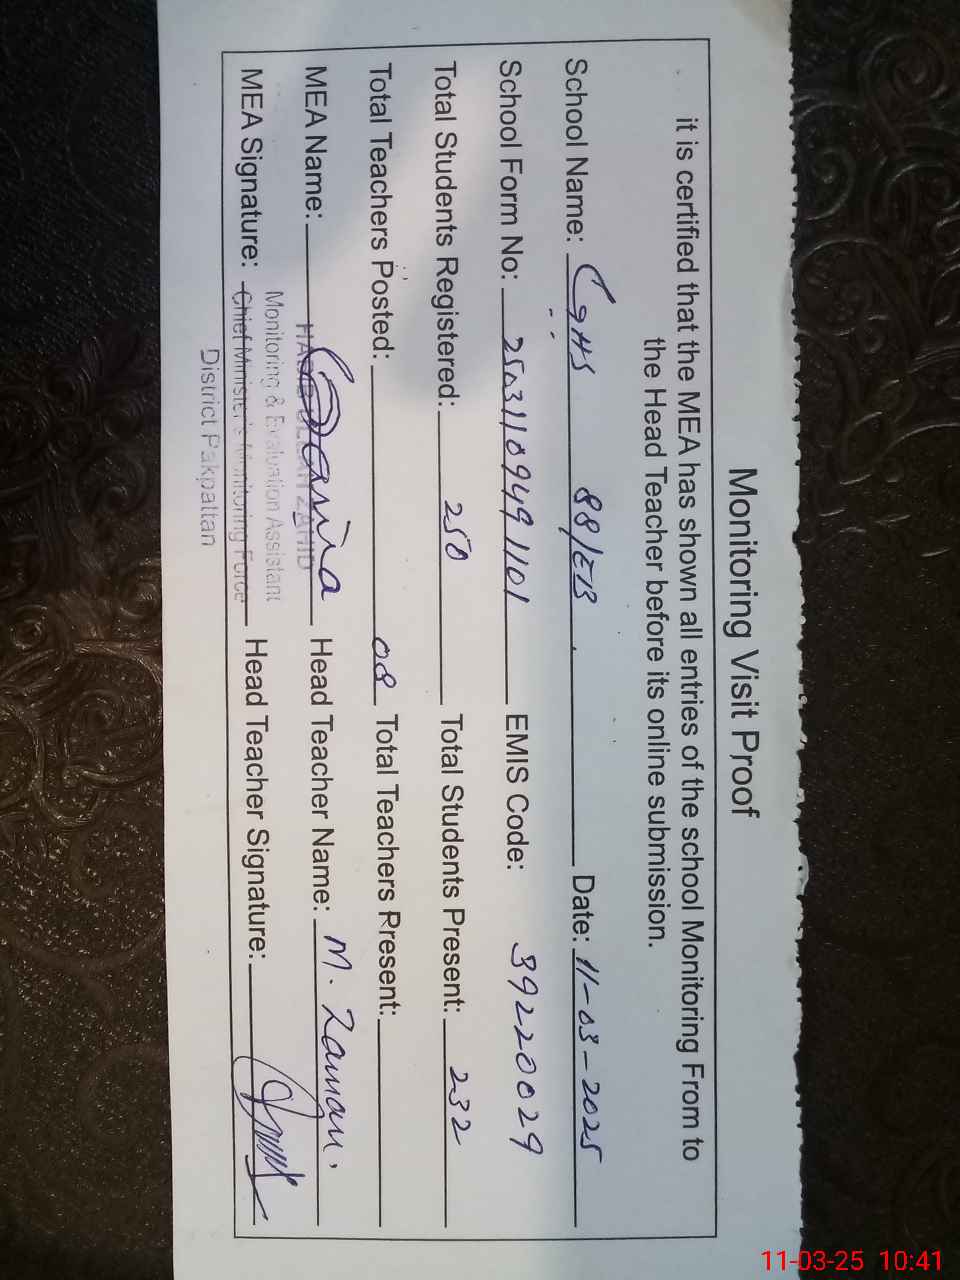 Monitoring Visit Proof
it is certified that the MEA has shown all entries of the school Monitoring From to
the Head Teacher before its online submission.
School Name: GHS 88/EB. Date: 11-03-2025
School Form No: 25031109491101 EMIS Code: 39220029
Total Students Registered: 250 Total Students Present: 232
Total Teachers Posted: 08 Total Teachers Present:
MEA Name: Head Teacher Name: M. Zaman.
Monitoring & Evaluation Assistant
MEA Signature: Chief Minister's Monitoring Force Head Teacher Signature:
District Pakpattan
11-03-25 10:41